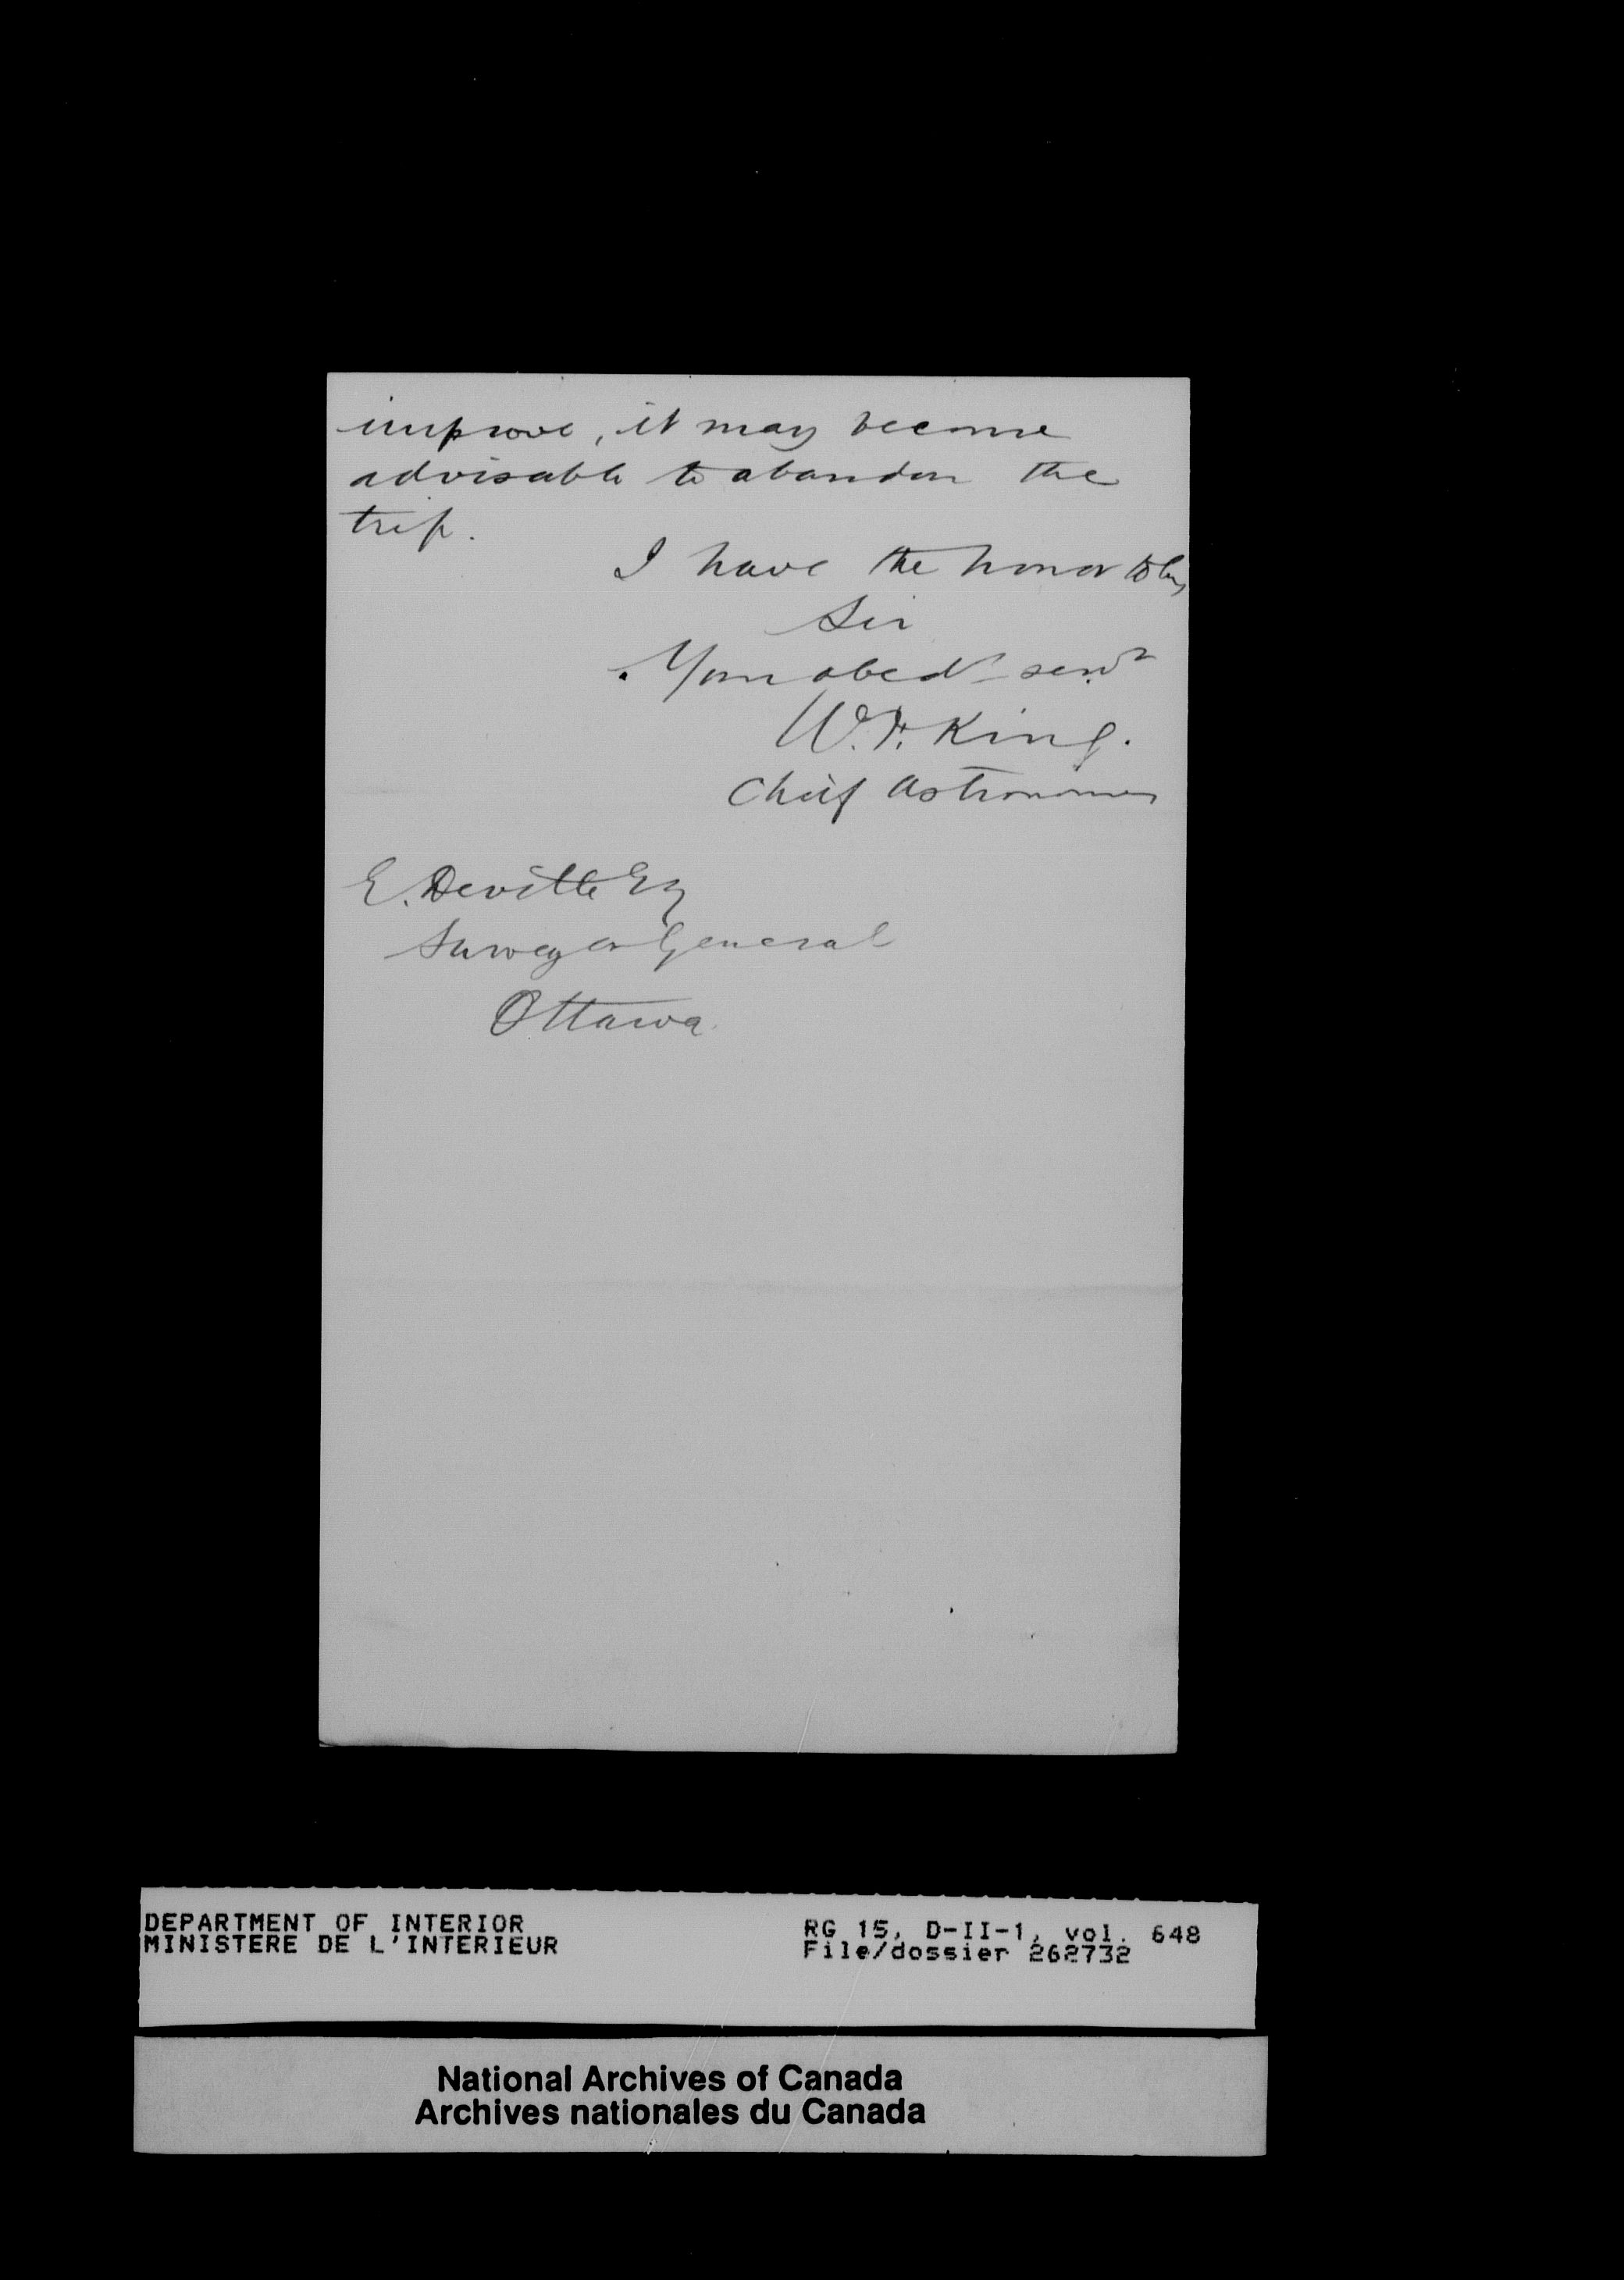 improve, it may become
advisable to abandon the
trip.
I have the honor to be,
Sir
Your obedt servt
W. F. King.
Chief Astronomer
E. Deville Esq
Surveyor General
Ottawa
DEPARTMENT OF INTERIOR
MINISTERE DE L'INTERIEUR
RG 15, D-II-1, vol. 648
File/dossier 262732
National Archives of Canada
Archives nationales du Canada